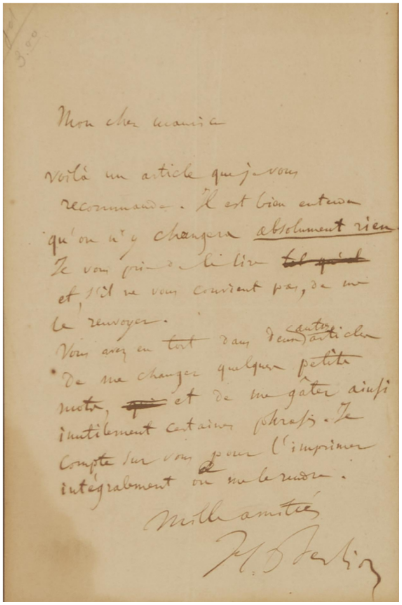 3.00
Mon cher maurice
Voilà un article que je vous
recommande. Il est bien entendu
qu'on n'y changera absolument rien
Je vous prie de le lire tel quel
et, s'il ne vous convient pas, de me
le renvoyer.
Vous avez eu tort dans d'autres articles
de me changer quelques petits
mots, qui et de me gâter ainsi
inutilement certaines phrases. Je
compte sur vous pour l'imprimer
intégralement ou me le rendre.
Mille amitiés
H. Berlioz